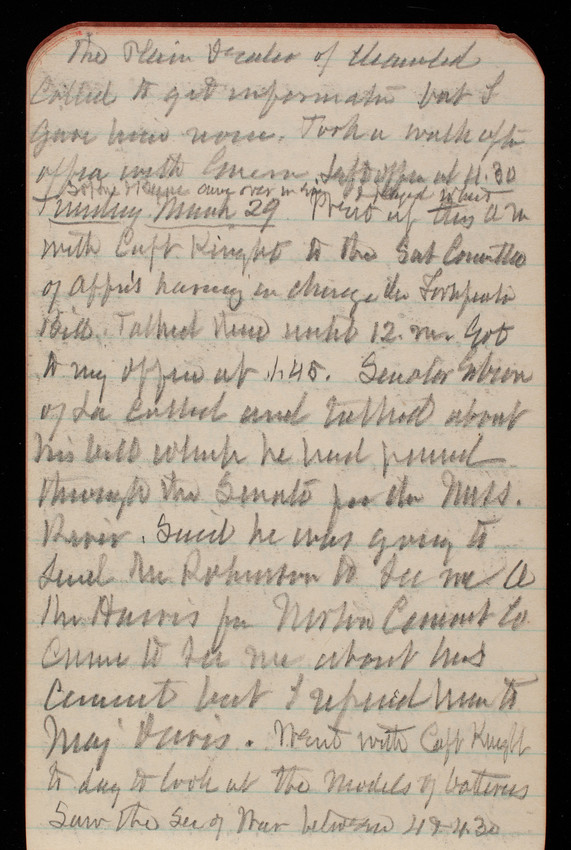 The Plain Dealer of Cleaveland
Called to get information but I
gave him none. Took a walk after
office with Green. Left office at 4.30
Before & Reeve came over in eve & played whist
Tuesday March 29 Went up this A M
with Capt Knight to the Sub Committee
of Appr's having in charge the Fortification
Bill. Talked there until 12. m. Got
to my office at 1.45. Senator Gibson
of La called and talked about
his bill which he had passed
through the Senate for the Miss.
River. Said he was going to
send Mr Robinson to see me. A
Mr Harris for Norton Cement Co
came to see me about his
cement but I referred him to
Maj Davis. Went with Capt Knight
to day to look at the models of batteries
Saw the Sec of War between 4 & 4.30